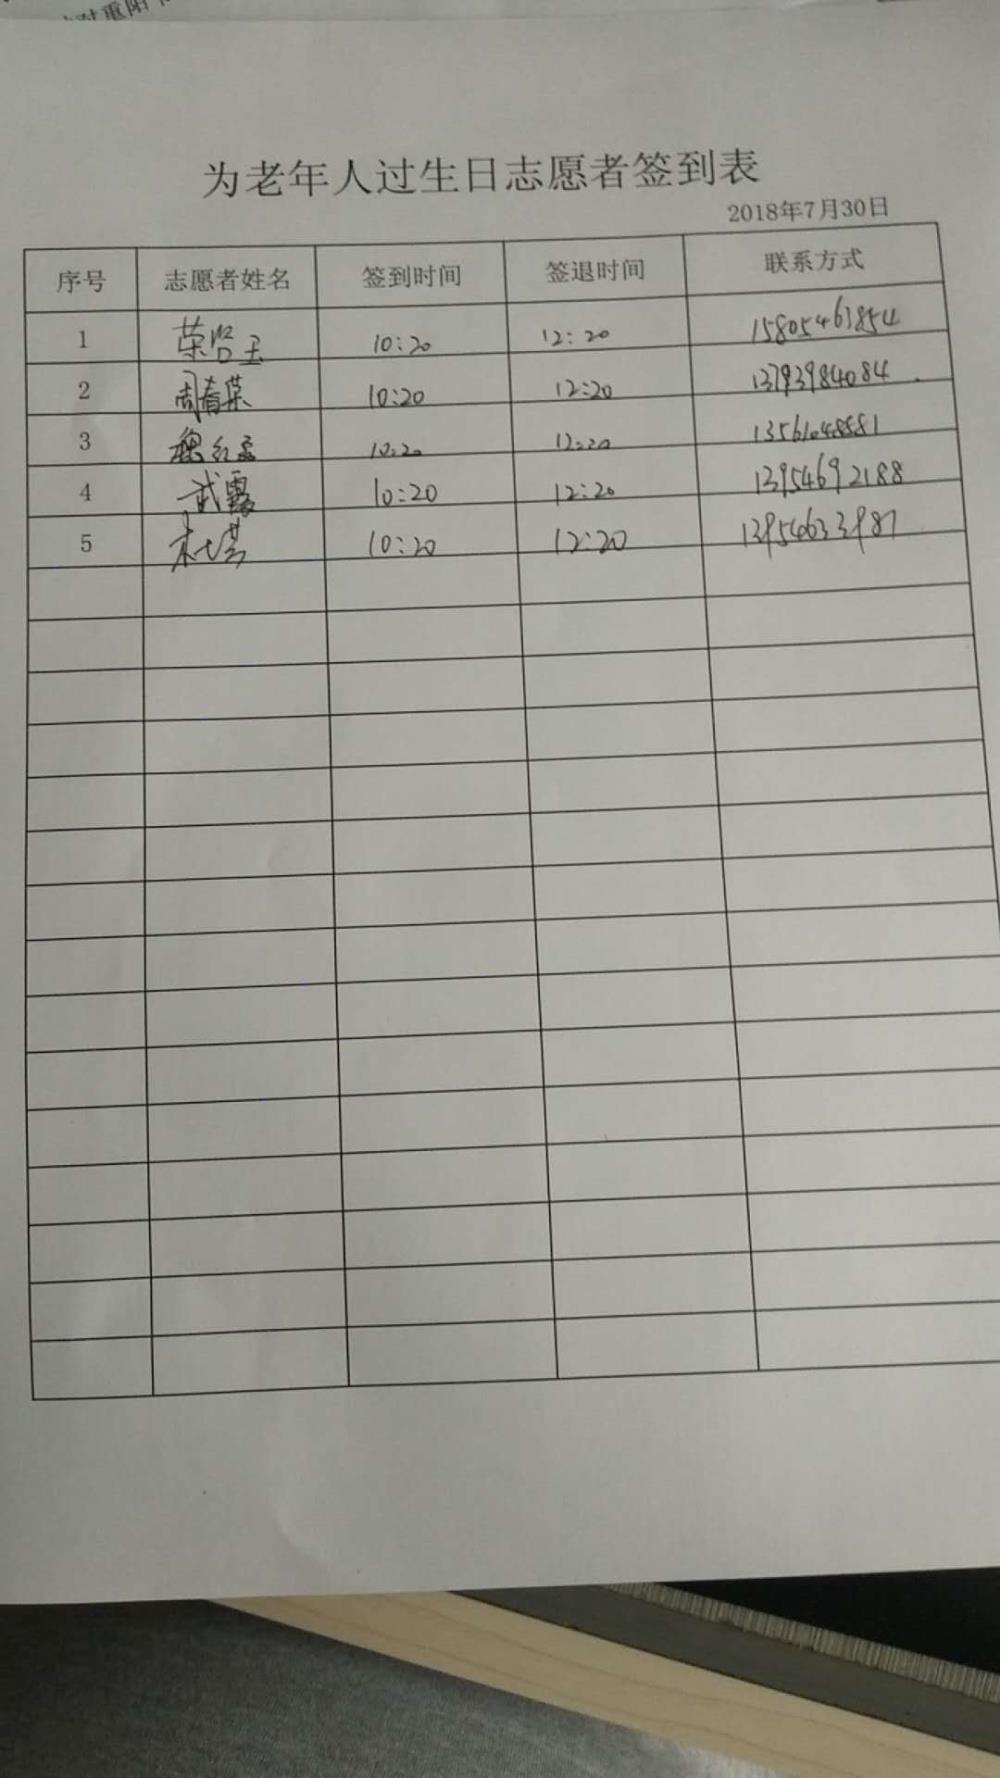 对重阳
为老年人过生日志愿者签到表
2018年7月30日
序号 志愿者姓名 签到时间 签退时间 联系方式
1 荣 玉 10:20 12:20 15805463854
2 周春荣 10:20 12:20 13793984084
3 魏红 10:20 12:20 13561048581
4 武霞 10:20 12:20 13954692188
5 10:20 12:20 13954633987